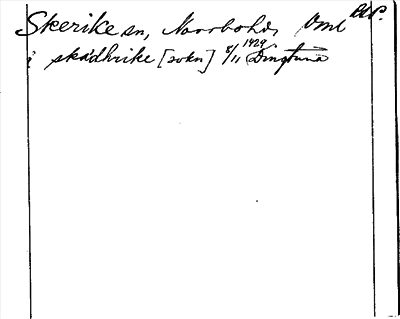 Skerike sn, Norrbo hd, Vml
i skädhrike [sokn] 8/11 1429 Dingtuna